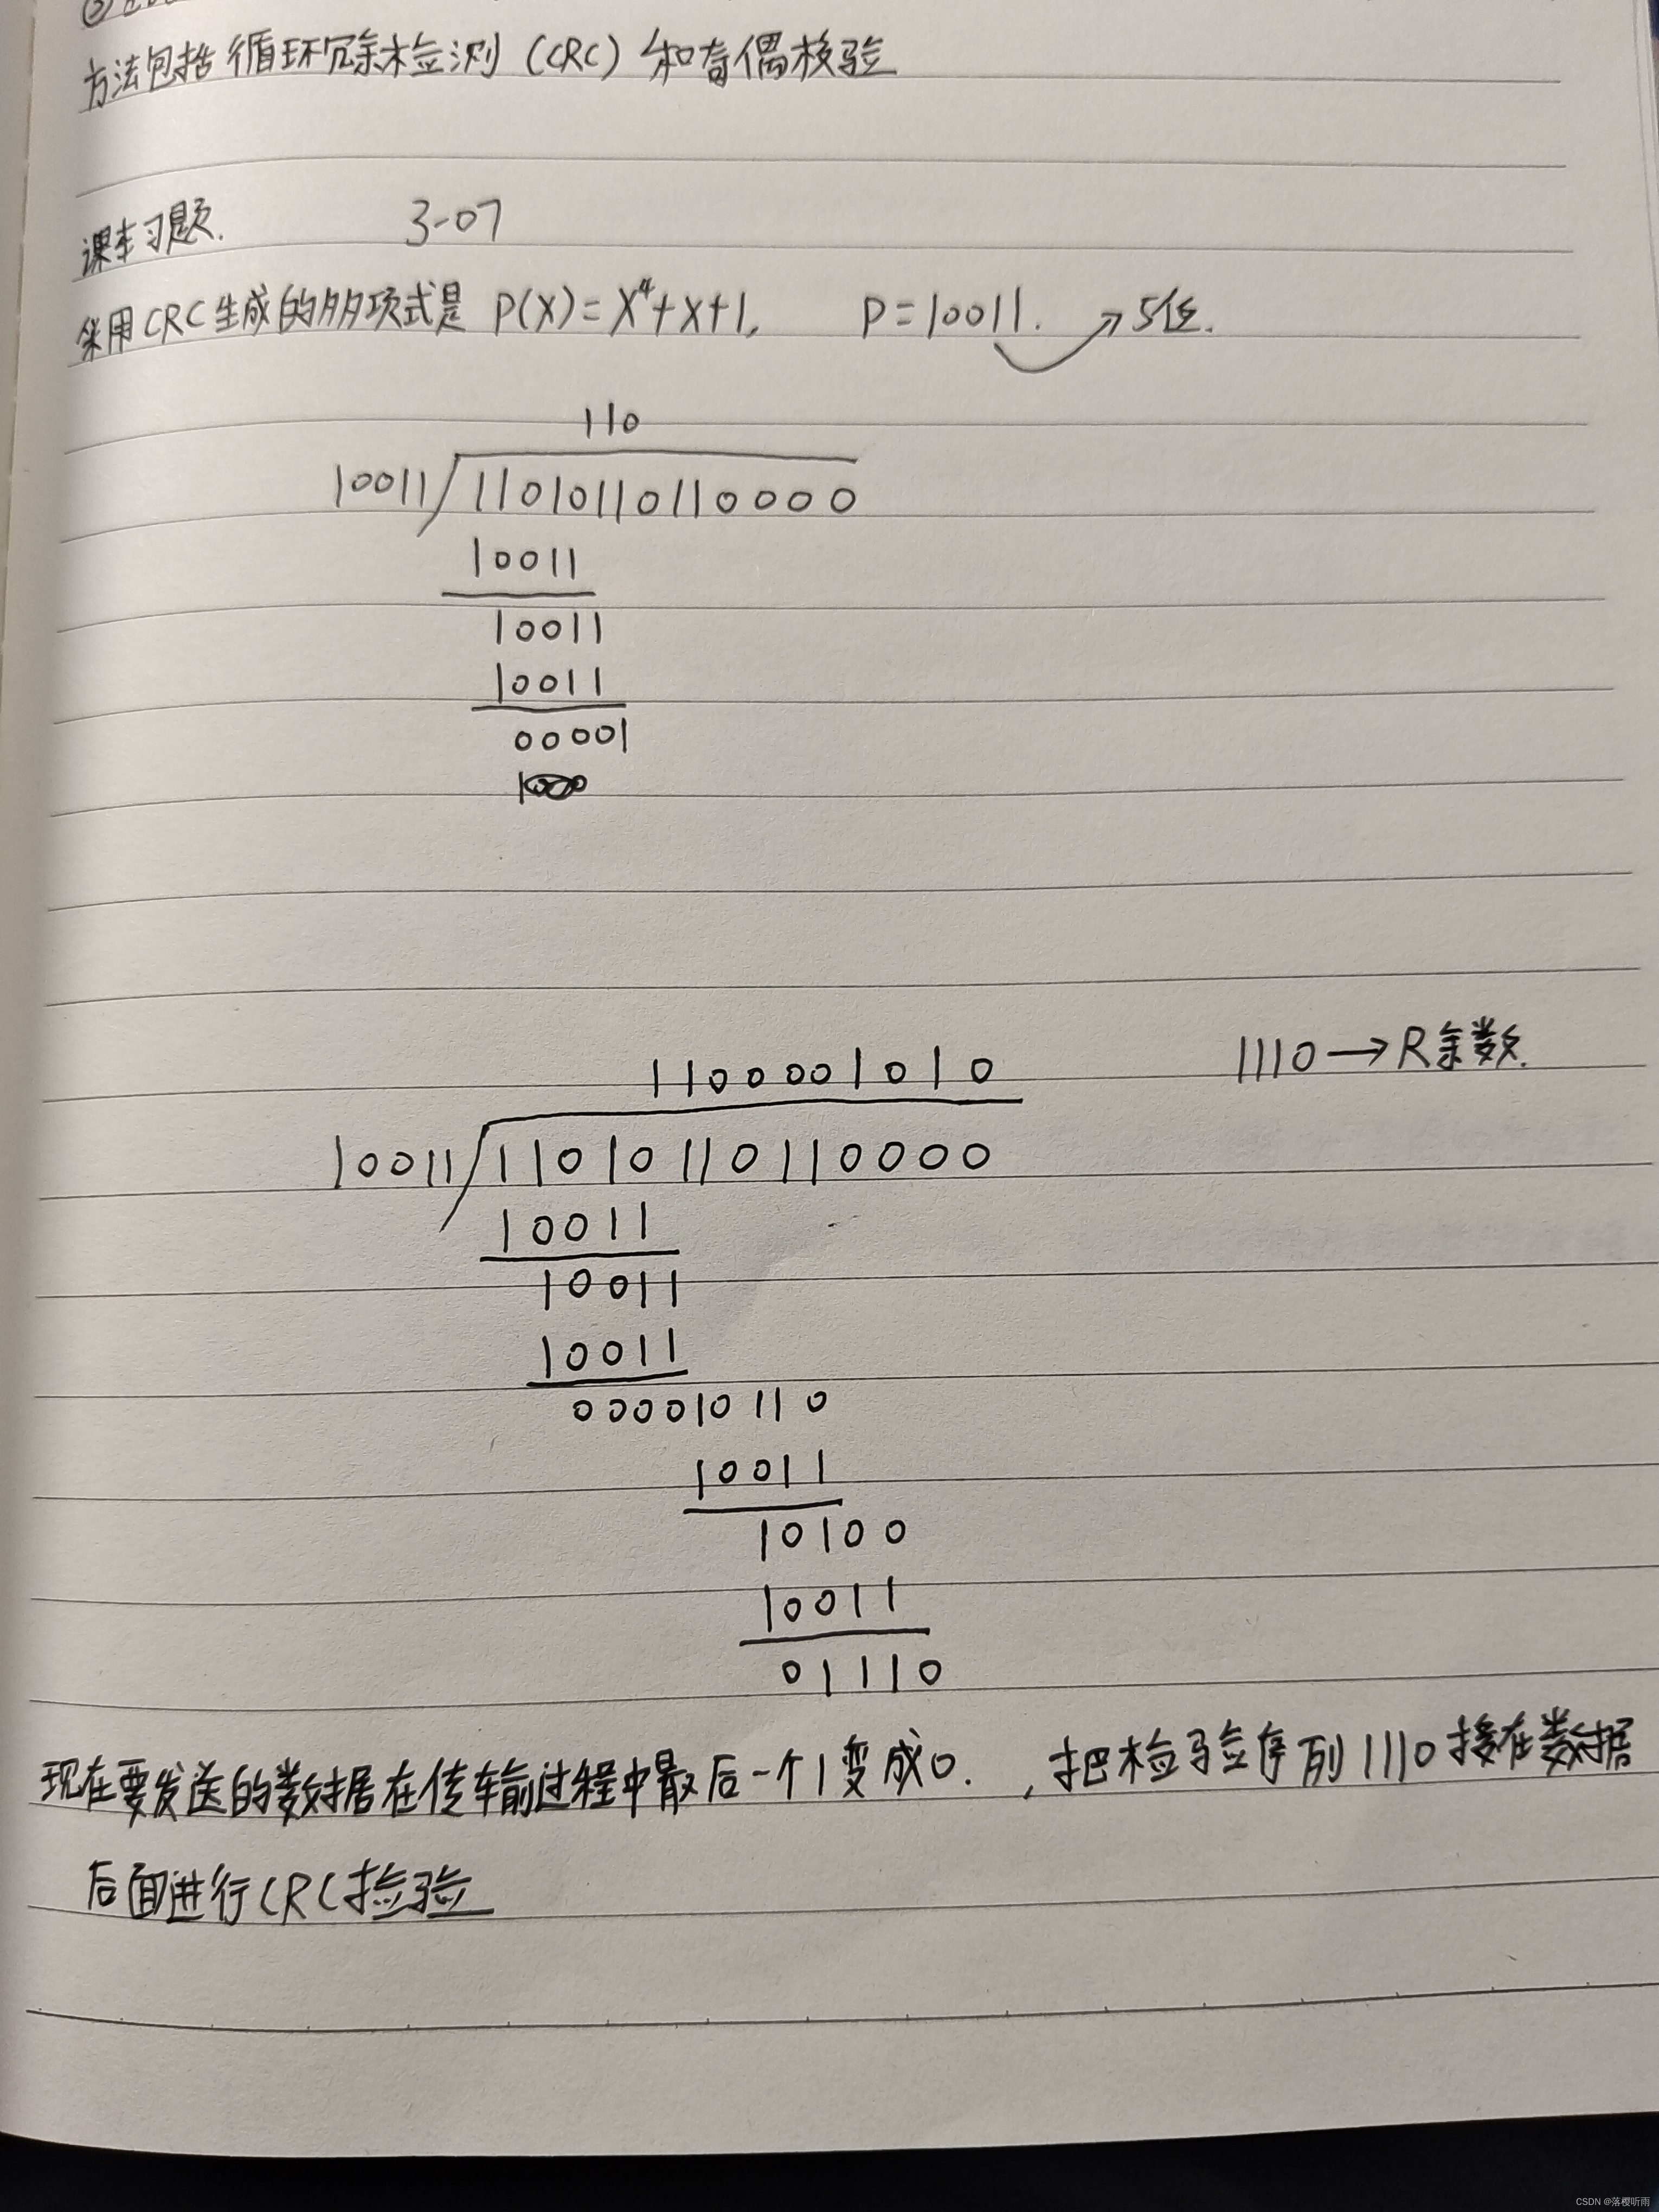 方法包括循环冗余检测（CRC）和奇偶校验
课本习题. 3-07
采用CRC生成的多项式是 P(X)=X⁴+X+1, P=10011. → 5位.
110
10011 11010110110000
10011
10011
10011
00001
1100001010 1110→R余数.
10011 11010110110000
10011
10011
10011
000010110
10011
10100
10011
01110
现在要发送的数据在传输过程中最后一个1变成0. ，把检验序列1110接在数据
后面进行CRC检验
CSDN @落樱听雨